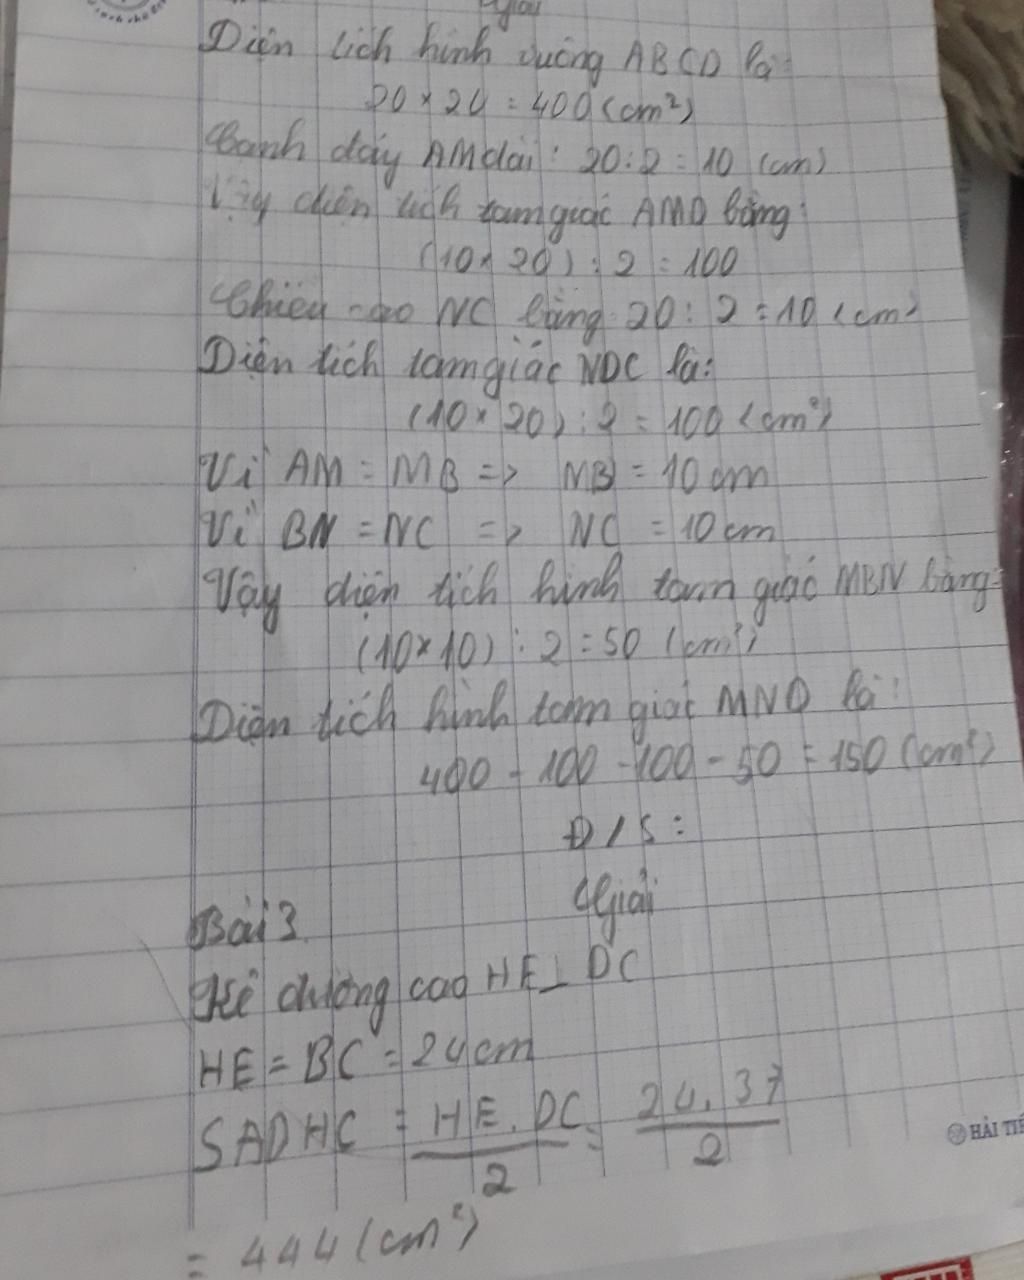 Giải
Diện tích hình vuông ABCD là:
20 × 20 = 400 (cm²)
Cạnh đáy AM dài: 20 : 2 = 10 (cm)
Vậy diện tích tam giác AMD bằng:
(10 × 20) : 2 = 100
Chiều cao NC bằng 20 : 2 = 10 (cm)
Diện tích tam giác NDC là:
(10 × 20) : 2 = 100 (cm²)
Vì AM = MB => MB = 10 cm
Vì BN = NC => NC = 10 cm
Vậy diện tích hình tam giác MBN bằng:
(10 × 10) : 2 = 50 (cm²)
Diện tích hình tam giác MND là:
400 - 100 - 100 - 50 = 150 (cm²)
Đ/S:
Bài 3 Giải
Kẻ đường cao HE ⊥ DC
HE = BC = 24 cm
SADHC = HE . DC / 2 = 24 . 37 / 2
= 444 (cm²)